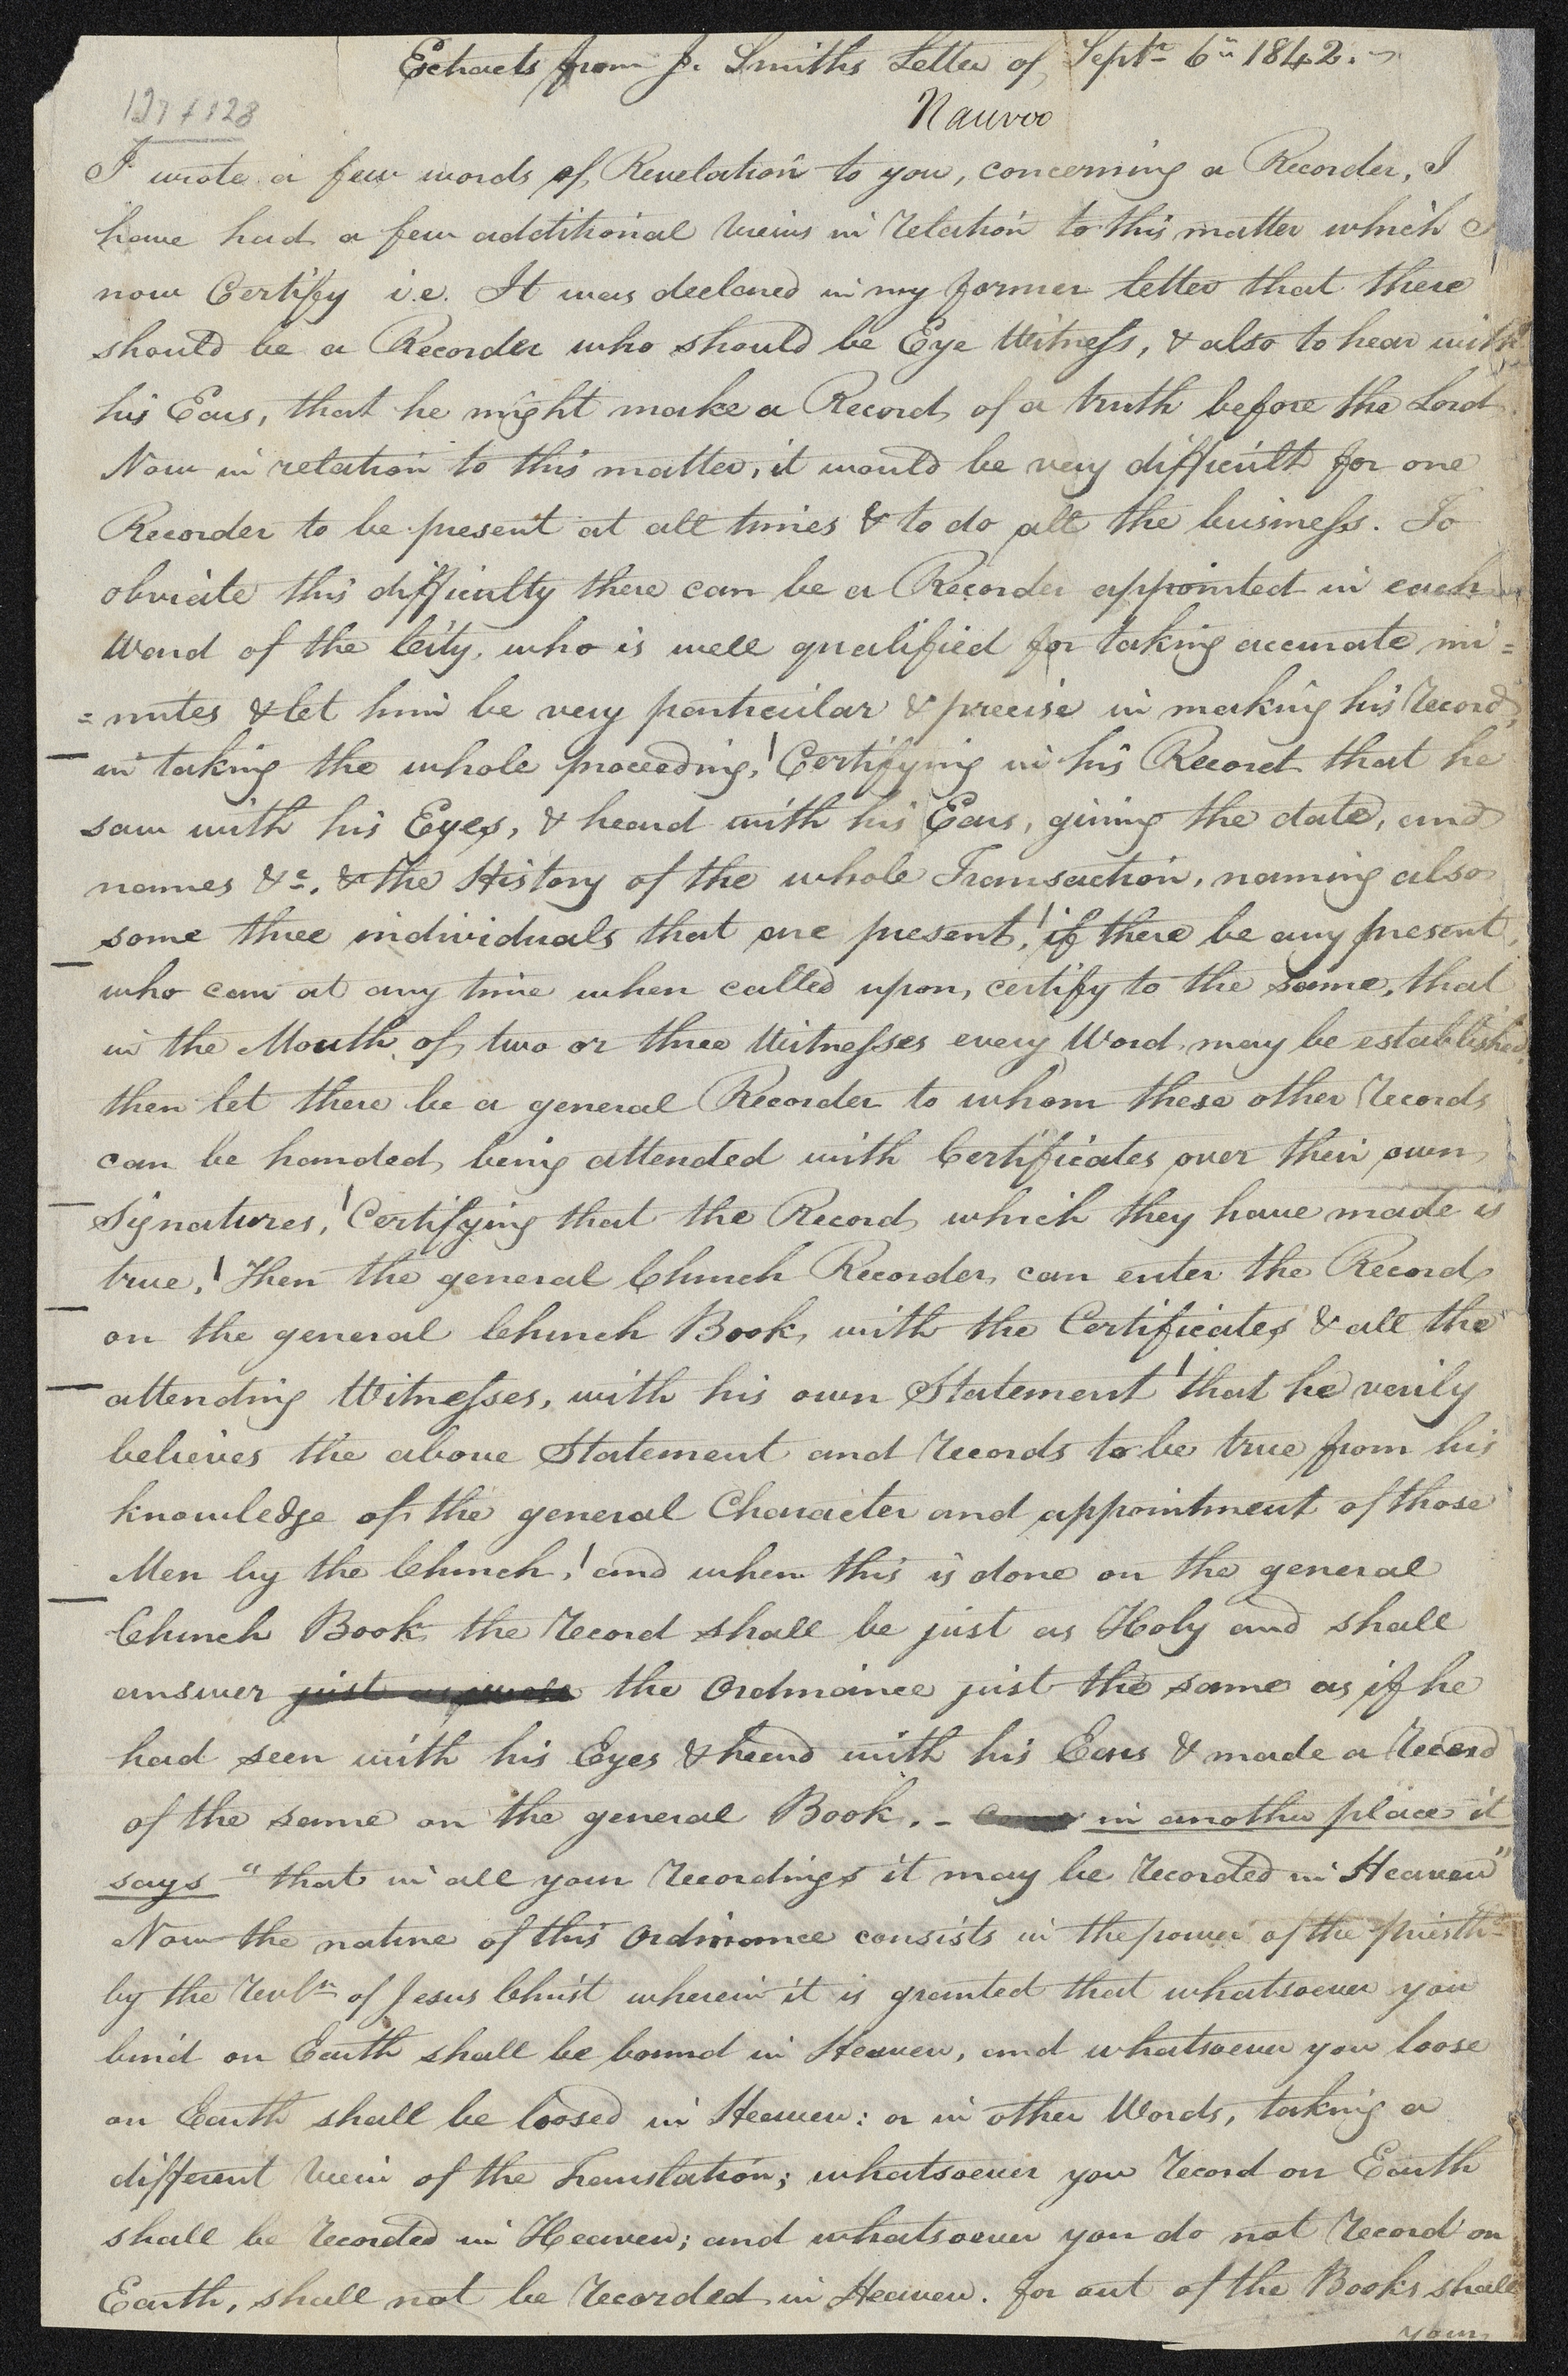 Extracts from J. Smiths Letter of Septr 6th 1842.
Nauvoo
127 & 128
I wrote a few words of Revelation to you, concerning a Recorder, I
have had a few additional views in relation to this matter which I
now Certify i.e. It was declared in my former letter that there
should be a Recorder who should be Eye Witness, & also to hear with
his Ears, that he might make a Record of a truth before the Lord
Now in relation to this matter, it would be very difficult for one
Recorder to be present at all times & to do all the business. To
obviate this difficulty there can be a Recorder appointed in each
Ward of the City, who is well qualified for taking accurate mi=
=nutes & let him be very particular & precise in making his Record,
in taking the whole proceeding, Certifying in his Record that he
saw with his Eyes, & heard with his Ears, giving the date, and
names &c. & the History of the whole Transaction, naming also
some three individuals that are present, if there be any present,
who can at any time when called upon, certify to the same, that
in the Mouth of two or three Witnesses every Word may be established
then let there be a general Recorder to whom these other records
can be handed, being attended with Certificates over their own
Signatures, Certifying that the Record which they have made is
true. Then the general Church Recorder can enter the Record
on the general Church Book, with the Certificates & all the
attending Witnesses, with his own Statement that he verily
believes the above Statement and records to be true from his
knowledge of the general Character and appointment of those
Men by the Church, and when this is done on the general
Church Book the record shall be just as Holy and shall
answer just as the Ordinance just the same as if he
had seen with his Eyes & heard with his Ears & made a record
of the same on the general Book. - in another place it
says "that in all your recordings it may be recorded in Heaven"
Now the nature of this Ordinance consists in the power of the priesth=
by the Revltn of Jesus Christ wherein it is granted that whatsoever you
bind on Earth shall be bound in Heaven, and whatsoever you loose
on Earth shall be loosed in Heaven: or in other Words, taking a
different view of the Translation; whatsoever you record on Earth
shall be recorded in Heaven; and whatsoever you do not record on
Earth, shall not be recorded in Heaven. for out of the Books shall
your